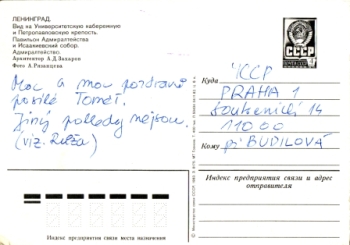 ЛЕНИНГРАД.
Вид на Университетскую набережную
и Петропавловскую крепость.
Павильон Адмиралтейства
и Исаакиевский собор.
Адмиралтейство.
Архитектор А.Д.Захаров
Фото А. Рязанцева
Moc a moc pozdravů
posílá Tomáš.
Jiný pohledy nejsou.
(viz. Růža)
СССР
Куда
ČССР
PRAHA 1
Soukenická 15
110 00
Кому
pí BUDILOVÁ
Индекс предприятия связи и адрес
отправителя
Индекс предприятия связи места назначения